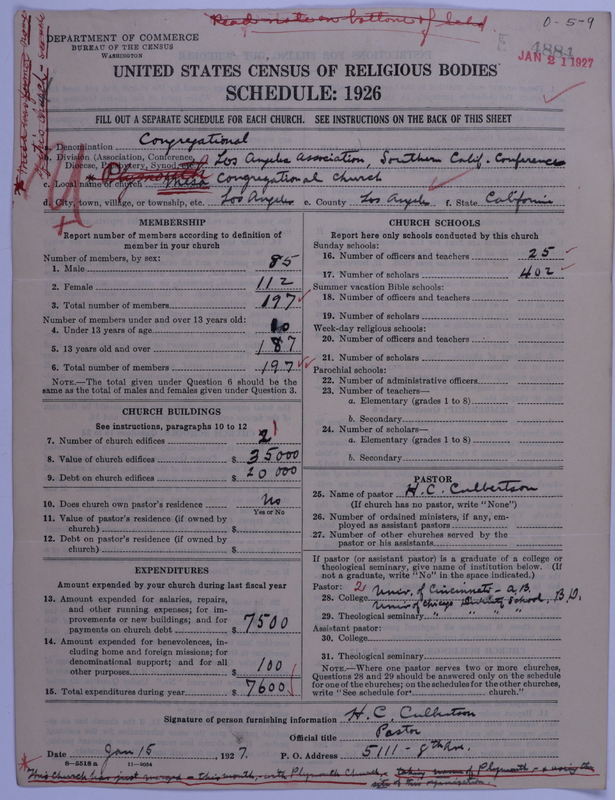 Read note on bottom of card.
0-5-9
DEPARTMENT OF COMMERCE
BUREAU OF THE CENSUS
WASHINGTON
4881
JAN 21 1927
UNITED STATES CENSUS OF RELIGIOUS BODIES
SCHEDULE: 1926
FILL OUT A SEPARATE SCHEDULE FOR EACH CHURCH. SEE INSTRUCTIONS ON THE BACK OF THIS SHEET
a. Denomination Congregational
b. Division (Association, Conference, Diocese, Presbytery, Synod, etc.) Los Angeles Association, Southern Calif. Conference
c. Local name of church Mesa Congregational Church
d. City, town, village, or township, etc. Los Angeles e. County Los Angeles f. State California
MEMBERSHIP
Report number of members according to definition of
member in your church
Number of members, by sex:
1. Male 85
2. Female 112
3. Total number of members 197
Number of members under and over 13 years old:
4. Under 13 years of age 10
5. 13 years old and over 187
6. Total number of members 197
NOTE.—The total given under Question 6 should be the
same as the total of males and females given under Question 3.
CHURCH BUILDINGS
See instructions, paragraphs 10 to 12
7. Number of church edifices 2 1
8. Value of church edifices $ 35000
9. Debt on church edifices $ 20 000
10. Does church own pastor's residence No
Yes or No
11. Value of pastor's residence (if owned by
church) $
12. Debt on pastor's residence (if owned by
church) $
EXPENDITURES
Amount expended by your church during last fiscal year
13. Amount expended for salaries, repairs,
and other running expenses; for im-
provements or new buildings; and for
payments on church debt $ 7500
14. Amount expended for benevolences, in-
cluding home and foreign missions; for
denominational support; and for all
other purposes $ 100
15. Total expenditures during year $ 7600
CHURCH SCHOOLS
Report here only schools conducted by this church
Sunday schools:
16. Number of officers and teachers 25
17. Number of scholars 402
Summer vacation Bible schools:
18. Number of officers and teachers
19. Number of scholars
Week-day religious schools:
20. Number of officers and teachers
21. Number of scholars
Parochial schools:
22. Number of administrative officers
23. Number of teachers—
a. Elementary (grades 1 to 8)
b. Secondary
24. Number of scholars—
a. Elementary (grades 1 to 8)
b. Secondary
PASTOR
25. Name of pastor H. C. Culbertson
(If church has no pastor, write "None")
26. Number of ordained ministers, if any, em-
ployed as assistant pastors
27. Number of other churches served by the
pastor or his assistants
If pastor (or assistant pastor) is a graduate of a college or
theological seminary, give name of institution below. (If
not a graduate, write "No" in the space indicated.)
Pastor: 2
28. College Univ. of Cincinnati - A.B.
Univ. of Chicago Divinity School, B.D.
29. Theological seminary " " " "
Assistant pastor:
30. College
31. Theological seminary
NOTE.—Where one pastor serves two or more churches,
Questions 28 and 29 should be answered only on the schedule
for one of the churches; on the schedules for the other churches,
write "See schedule for church."
Signature of person furnishing information H. C. Culbertson
Official title Pastor
Date Jan 15, 1927. P. O. Address 5111 - 8th Ave.
8-5518a 11-9054
*This Church has just merged this month, with Plymouth Church, taking name of Plymouth - & using the
site of this organization.